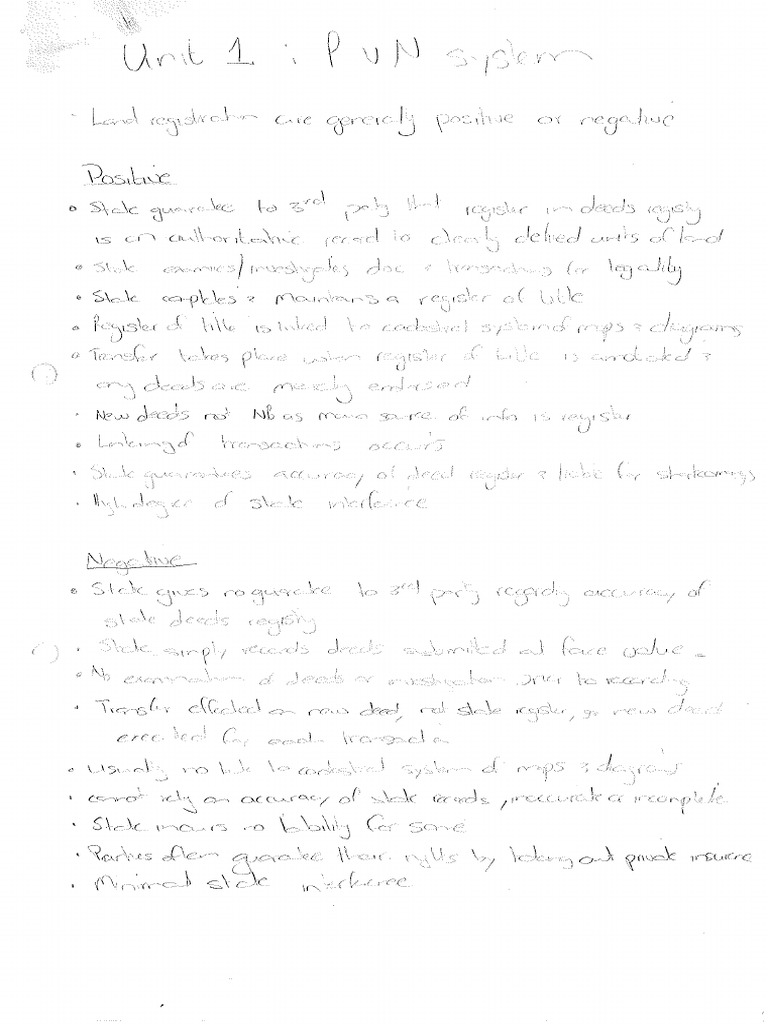 Unit 1 : P v N system
- Land registration are generally positive or negative
Positive
• State guarantee to 3rd party that register in deeds registry
is an authoritative record to clearly defined units of land
• State examines/investigates doc & transactions for legality
• State completes & maintains a register of title
• Register of title is linked to cadastral system of maps & diagrams
• Transfer takes place when register of title is annotated &
any deeds are merely endorsed
• New deeds not NB as main source of info is register
• Linking of transactions occurs
• State guarantees accuracy of deed register & liable for shortcomings
• High degree of state interference
Negative
• State gives no guarantee to 3rd party regarding accuracy of
state deeds registry
• State simply records deeds submitted at face value -
• No examination of deeds or investigation prior to recording
• Transfer effected on new deed, not state register, so new deed
executed for each transaction
• Usually no link to cadastral system of maps & diagrams
• cannot rely on accuracy of state records, inaccurate or incomplete
• State incurs no liability for same
• Parties often guarantee their rights by taking out private insurance
• Minimal state interference